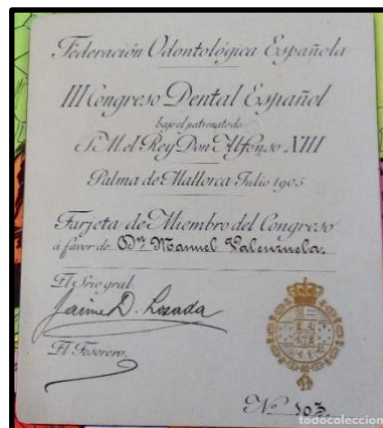 Federación Odontológica Española
III Congreso Dental Español
bajo el patronato de
S. M. el Rey Don Alfonso XIII
Palma de Mallorca Julio 1905
Tarjeta de Miembro del Congreso
á favor de Dn. Manuel Valenzuela.
El Srio gral.
Jaime D. Losada
El Tesorero,
No. 103.
todocoleccion